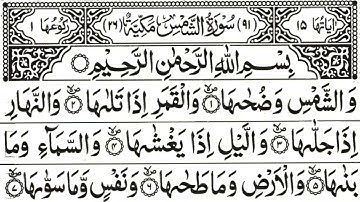 اٰيَاتُهَا ١٥ (٩١) سُوْرَةُ الشَّمْسِ مَكِّيَّةٌ (٢٦) رُكُوْعُهَا ١
بِسْمِ اللّٰهِ الرَّحْمٰنِ الرَّحِيْمِ
وَالشَّمْسِ وَضُحٰىهَا ١ وَالْقَمَرِ اِذَا تَلٰىهَا ٢ وَالنَّهَارِ
اِذَا جَلّٰىهَا ٣ وَالَّيْلِ اِذَا يَغْشٰىهَا ٤ وَالسَّمَآءِ وَمَا
بَنٰىهَا ٥ وَالْاَرْضِ وَمَا طَحٰىهَا ٦ وَنَفْسٍ وَّمَا سَوّٰىهَا ٧